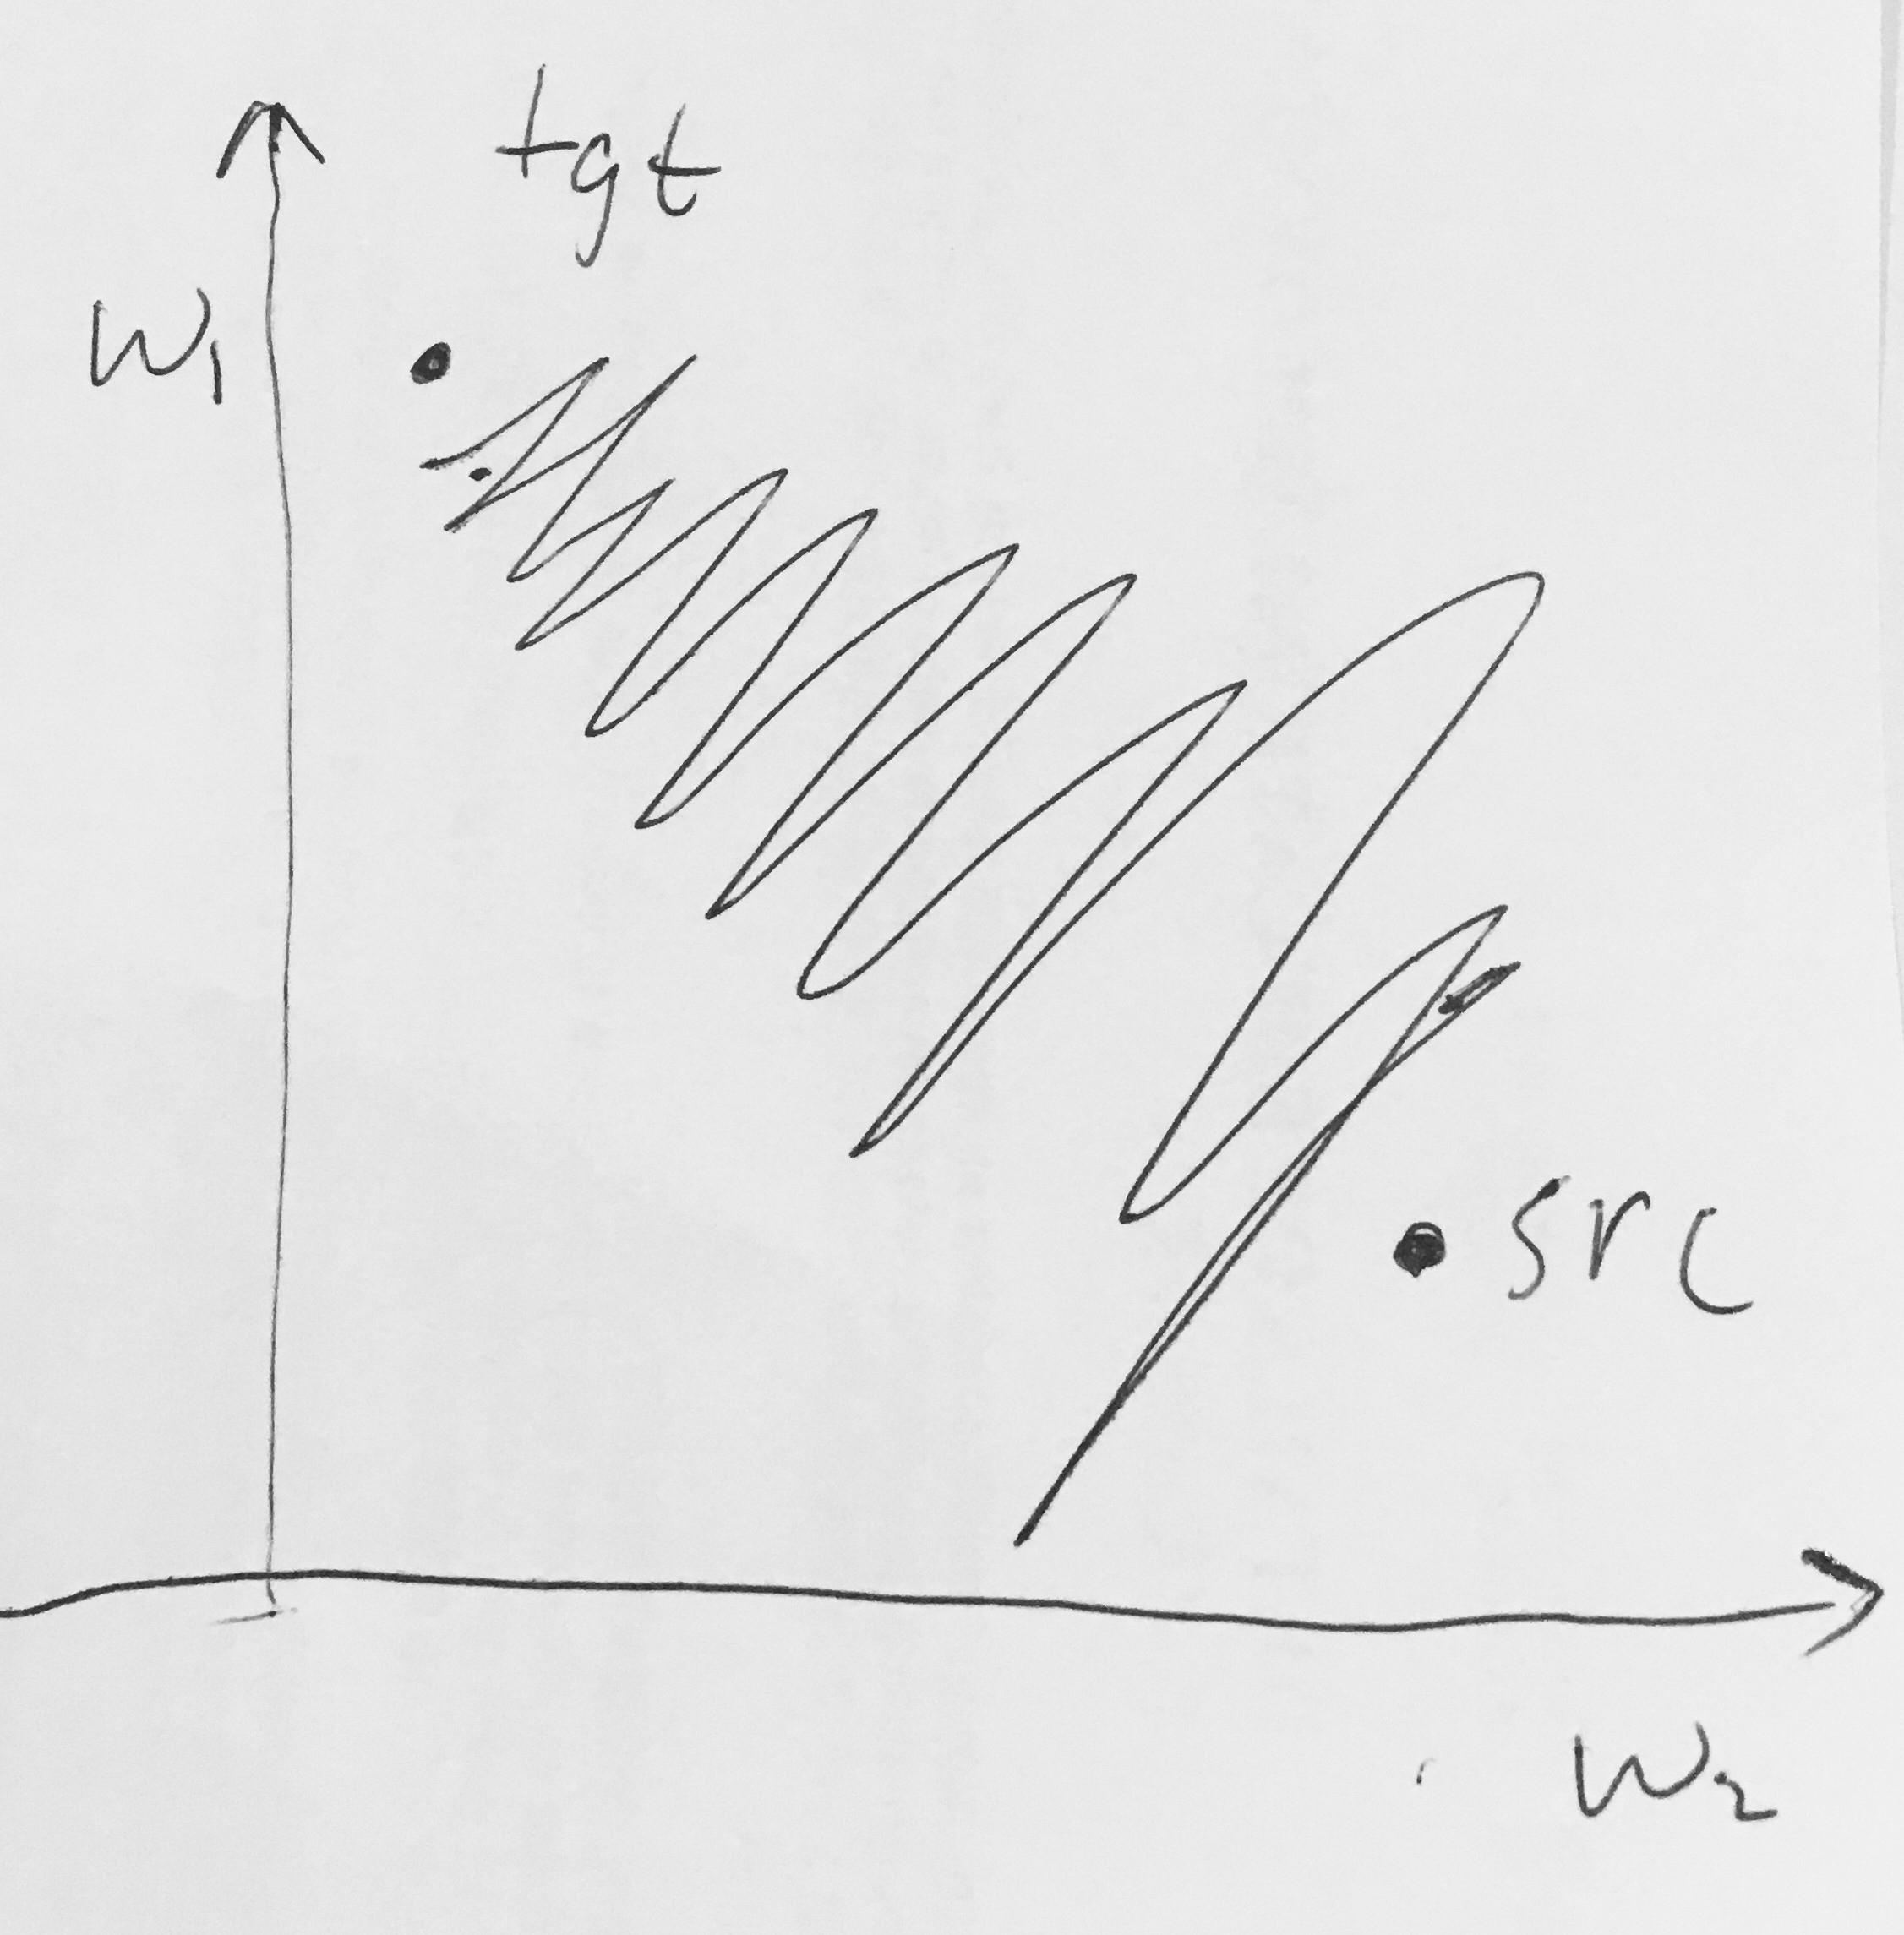 tgt
W₁
src
W₂